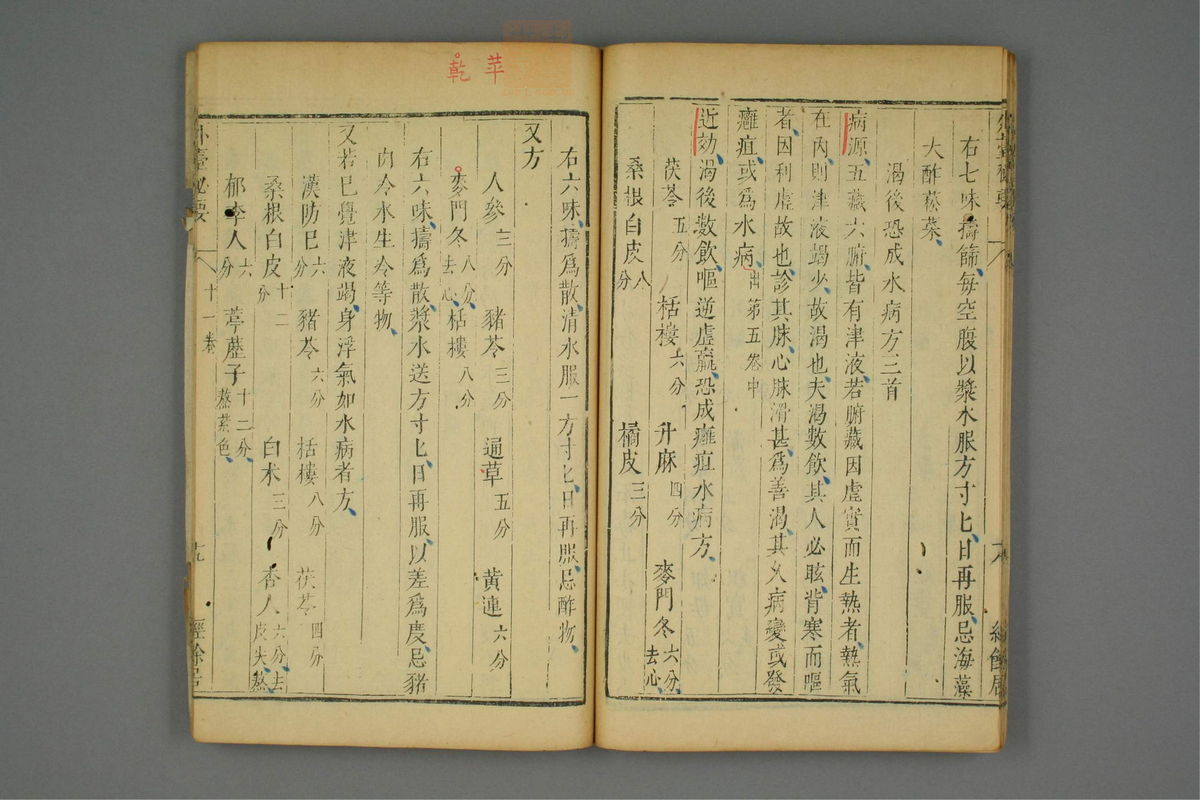 右七味擣篩每空腹以漿水服方寸匕日再服忌海藻
大酢菘菜
渴後恐成水病方三首
病源五藏六腑皆有津液若腑藏因虛實而生熱者熱氣
在內則津液竭少故渴也夫渴數飲其人必眩背寒而嘔
者因利虛故也診其脉心脉滑甚爲善渴其久病變或發
癰疽或爲水病出第五卷中
近効渴後數飲嘔逆虛羸恐成癰疽水病方
茯苓五分 栝樓六分 升麻四分 麥門冬六分去心
桑根白皮八分 橘皮三分
右六味擣爲散清水服一方寸匕日再服忌酢物
又方
人參三分 豬苓三分 通草五分 黄連六分
麥門冬八分去心 栝樓八分
右六味擣爲散漿水送方寸匕日再服以差爲度忌豬
肉冷水生冷等物
又若已覺津液竭身浮氣如水病者方
漢防已六分 豬苓六分 栝樓八分 茯苓四分
桑根白皮十二分 白朮三分 杏人六分去皮尖熬
郁李人六分 葶藶子十二分熬紫色
外臺秘要 十一卷 十九 經餘居
乾 苹